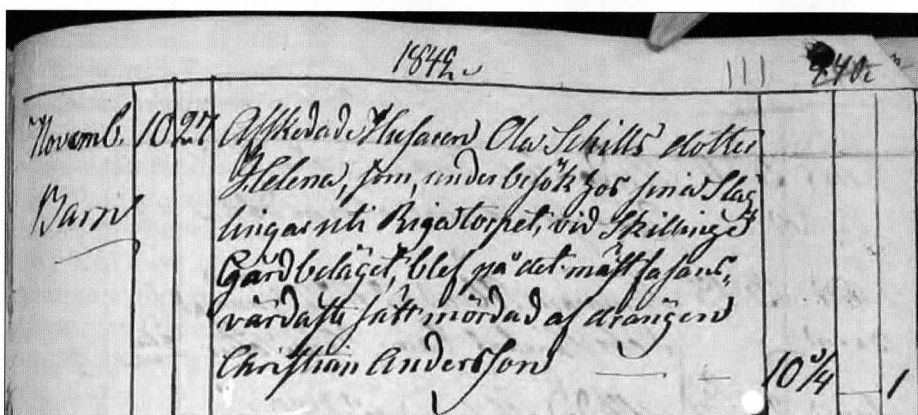 1842.
Novemb. 10 27 Afskedade Husaren Ola Schills dotter
Barn Helena, som, under besök hos sina Släg
tingar uti Rigatorpet, vid Skillinge
Gård beläget, blef på det mäst fasans-
värdaste sätt mördad af drängen
Christian Andersson 10 3/4 1